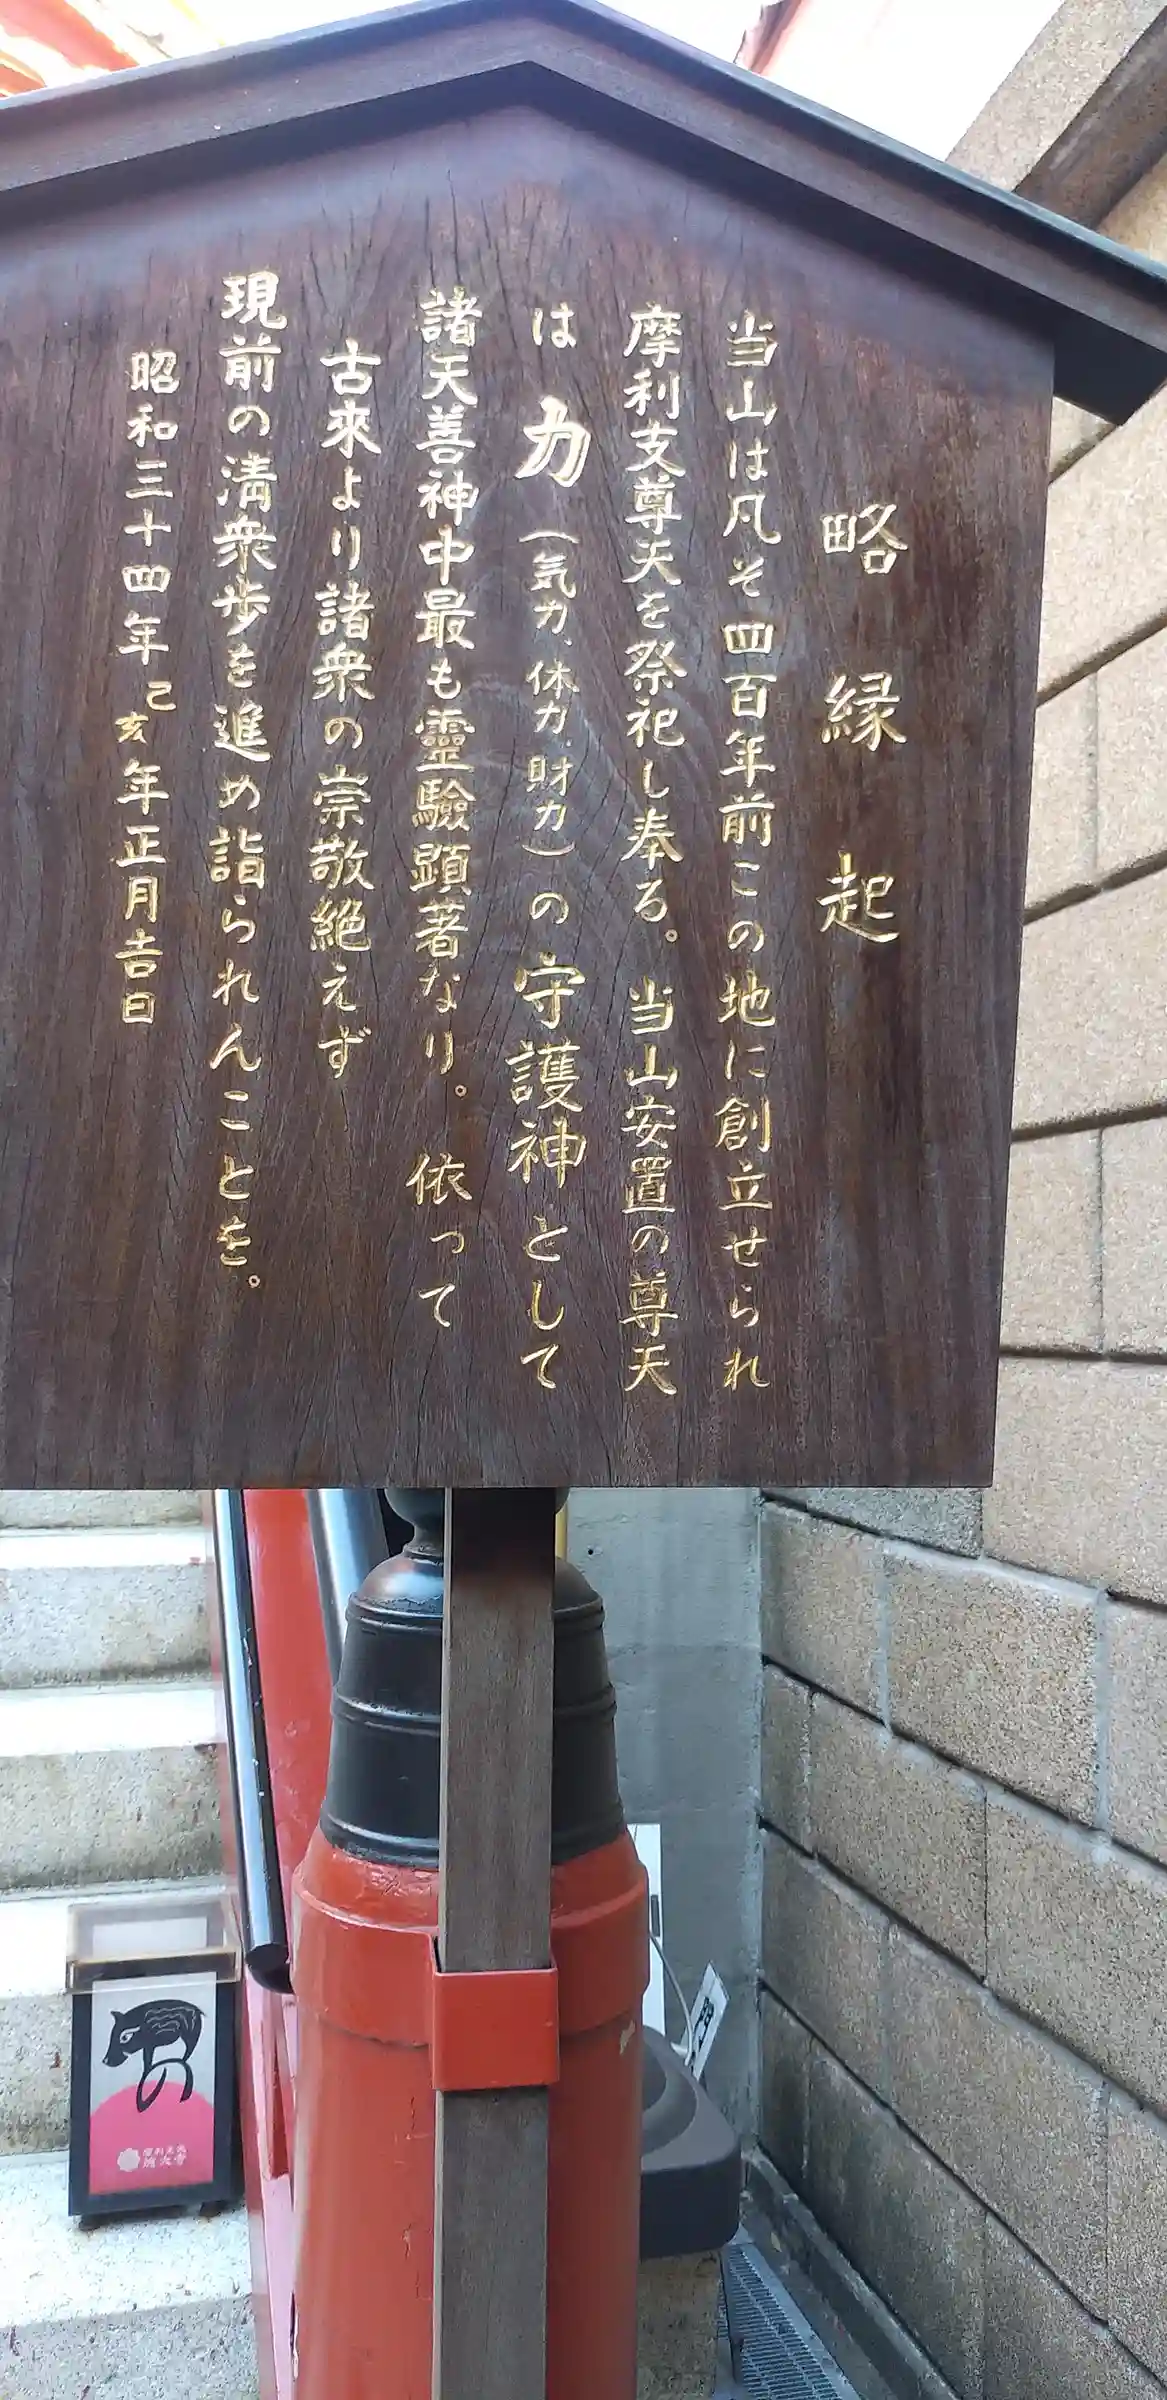 略縁起
当山は凡そ四百年前この地に創立せられ
摩利支尊天を祭祀し奉る。当山安置の尊天
は力(気力、体力、財力)の守護神として
諸天善神中最も靈驗顕著なり。依って
古來より諸衆の崇敬絶えず
現前の清衆歩を進め詣られんことを。
昭和三十四年己亥年正月吉日
摩利支天
徳大寺
門